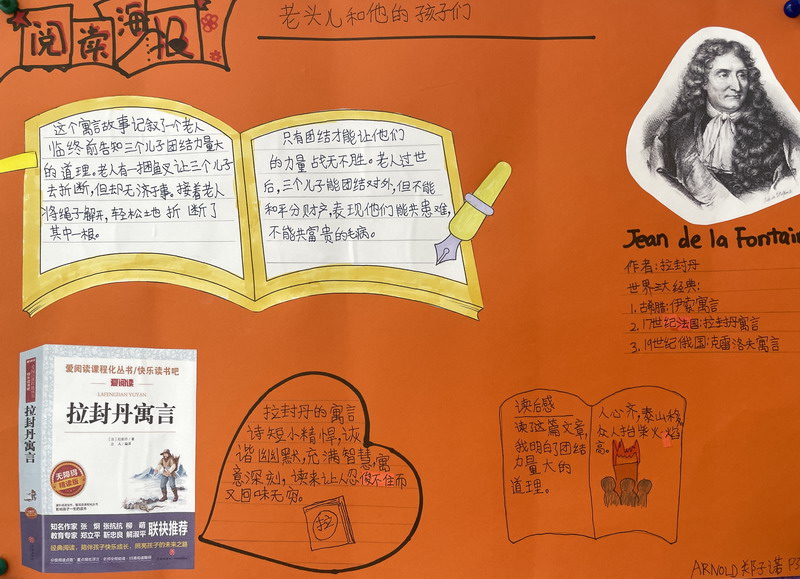 阅读海报
老头儿和他的孩子们
这个寓言故事记叙了一个老人
临终前告知三个儿子团结力量大
的道理。老人有一捆鱼叉让三个儿子
去折断,但却无济于事。接着老人
将绳子解开,轻松土地折断了
其中一根。
只有团结才能让他们
的力量战无不胜。老人过世
后,三个儿子能团结对外,但不能
和平分财产,表现他们能共患难,
不能共富贵的毛病。
Jean de la Fontain
作者:拉封丹
世界三大经典:
1. 古希腊:伊索寓言
2. 17世纪法国:拉封丹寓言
3. 19世纪俄国:克雷洛夫寓言
爱阅读课程化丛书/快乐读书吧
爱阅读
LAFENGDAN YUYAN
拉封丹寓言
拉封丹寓言
无障碍
精读版
知名作家 张炯 张抗抗 柳萌
教育专家 郑立平 靳忠良 解淑平
联袂推荐
经典阅读,陪伴孩子快乐成长,照亮孩子的未来之路
拉封丹的寓言
诗短小精悍,诙
谐幽默,充满智慧,寓
意深刻,读来让人忍俊不住而
又回味无穷。
拉
读后感
读了这篇文章,
我明白了团结
力量大的
道理。
人心齐,泰山移,
众人拾柴火焰
高。
ARNOLD 郑子诺 P3